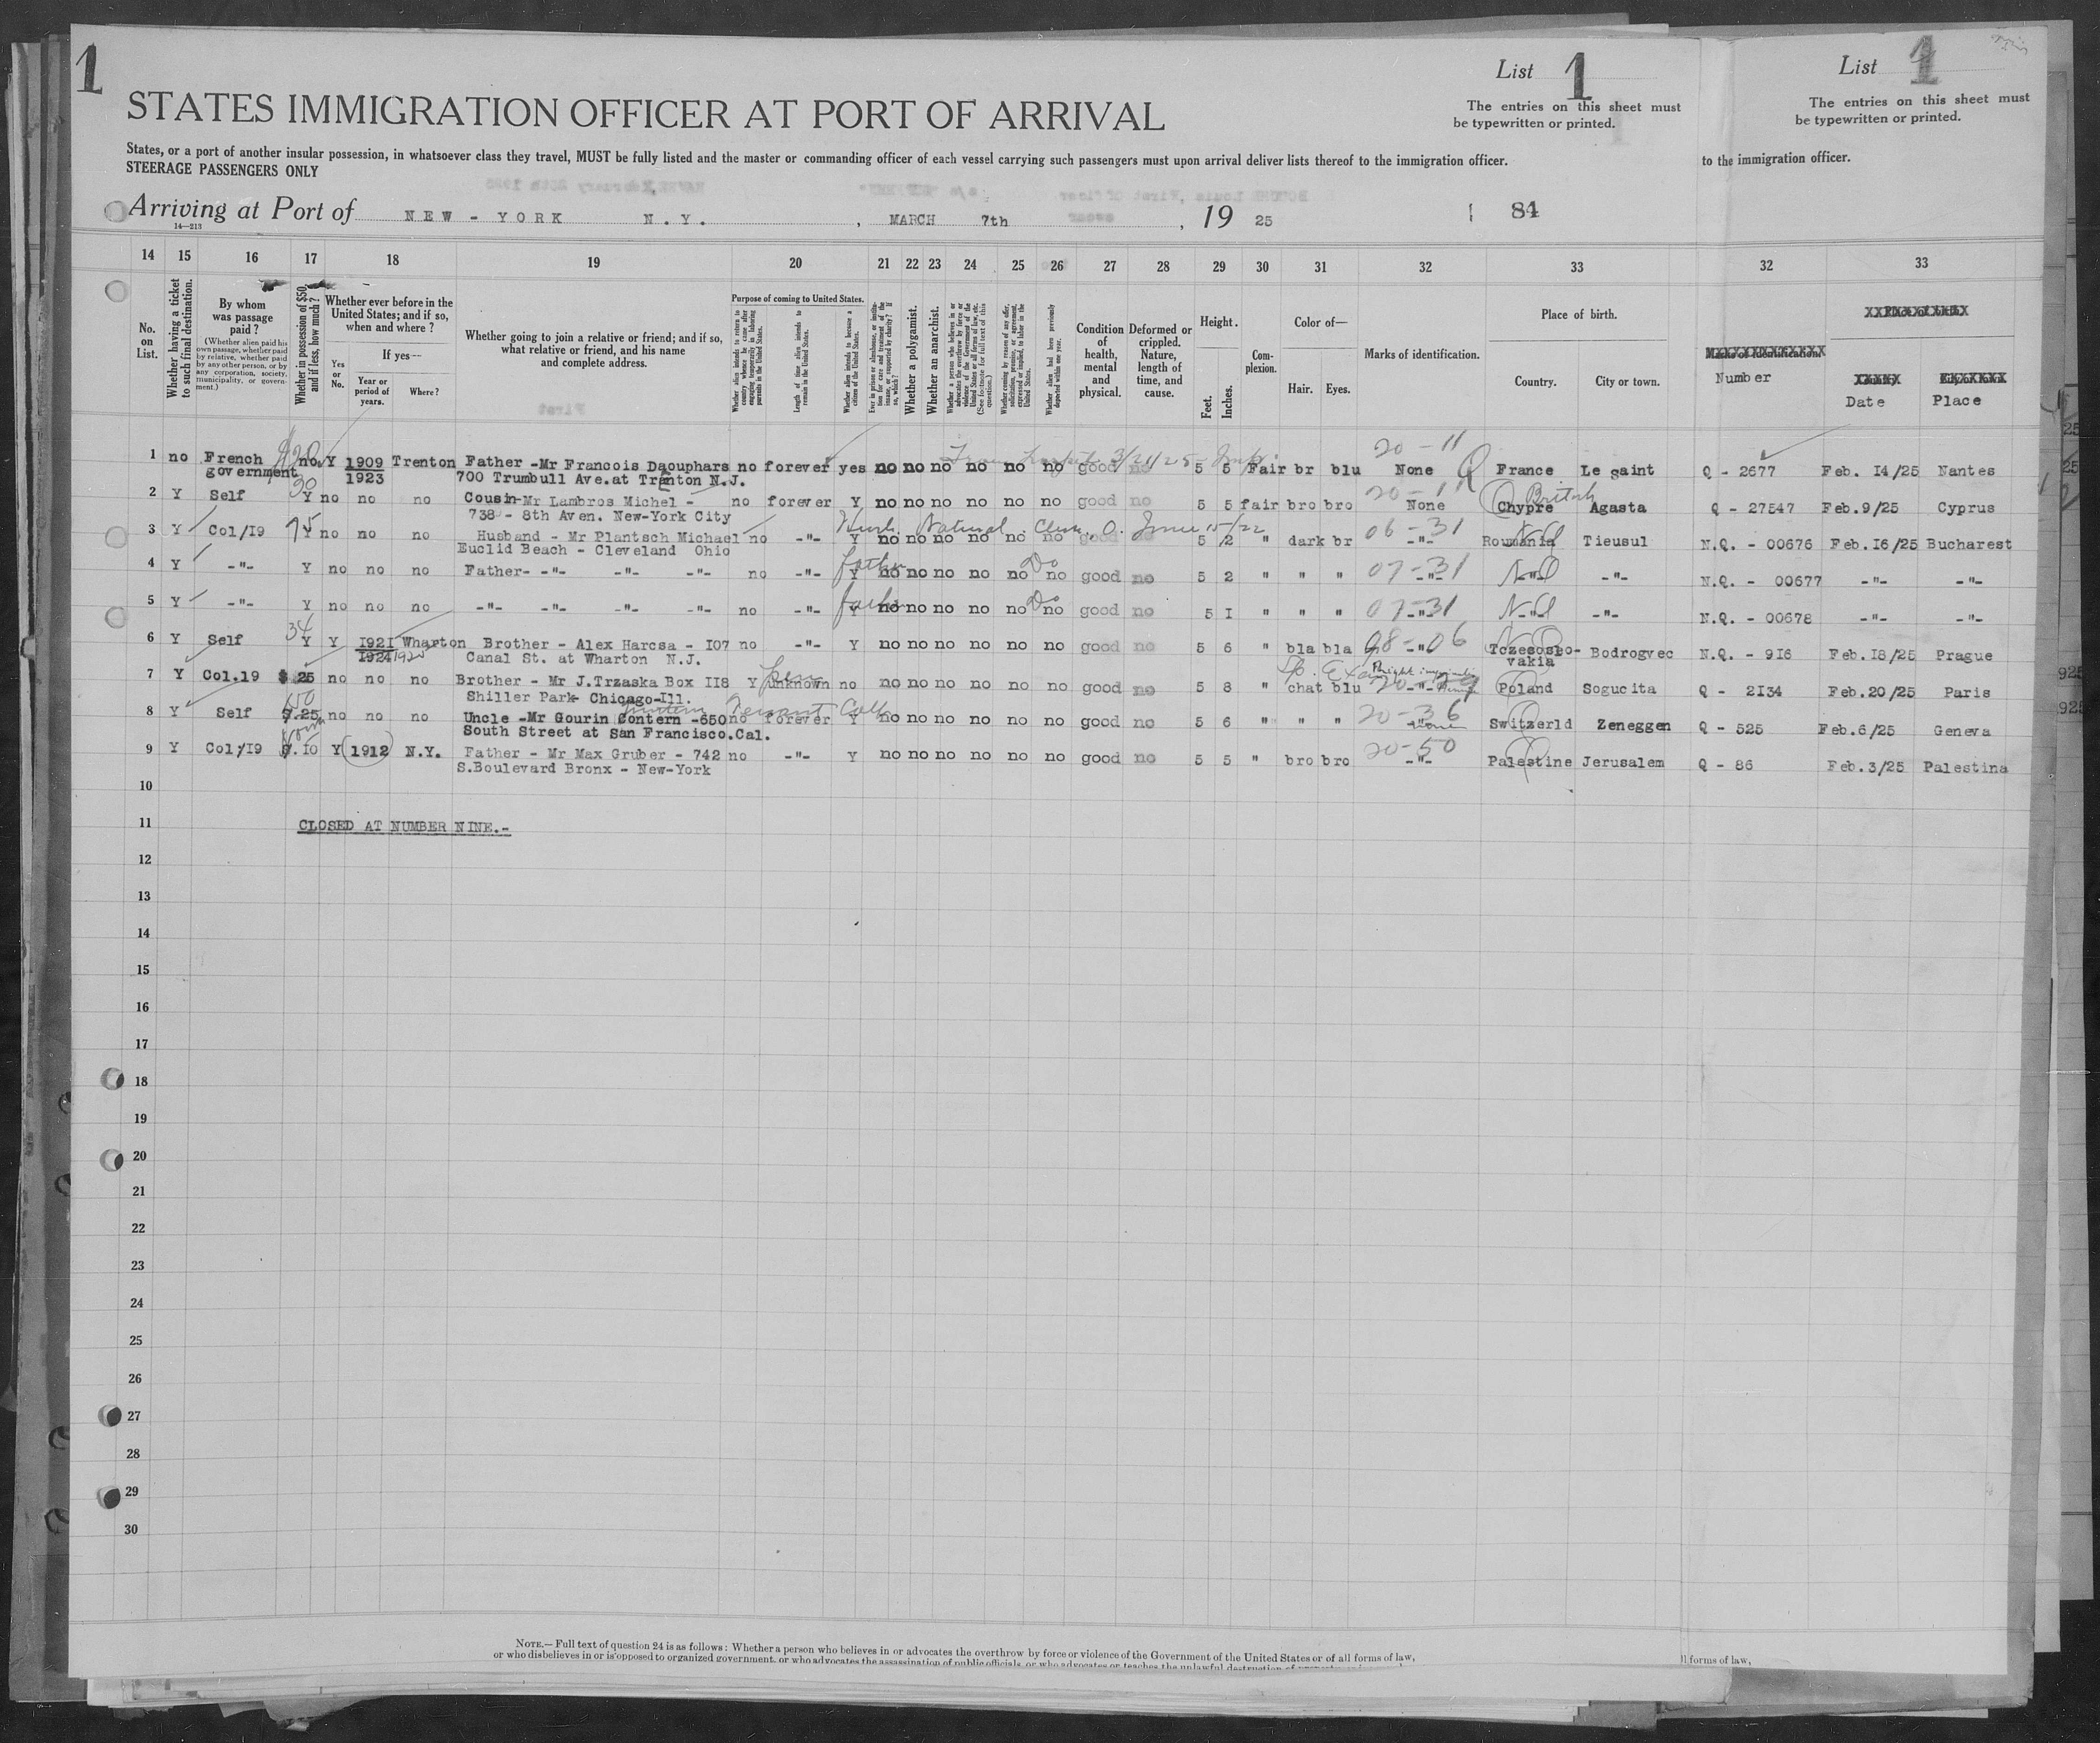 1
List 1
List 1
The entries on this sheet must
be typewritten or printed.
The entries on this sheet must
be typewritten or printed.
STATES IMMIGRATION OFFICER AT PORT OF ARRIVAL
States, or a port of another insular possession, in whatsoever class they travel, MUST be fully listed and the master or commanding officer of each vessel carrying such passengers must upon arrival deliver lists thereof to the immigration officer.
to the immigration officer.
STEERAGE PASSENGERS ONLY
Arriving at Port of NEW - YORK N.Y. , MARCH 7th , 19 25 84
14—213
14 15 16 17 18 19 20 21 22 23 24 25 26 27 28 29 30 31 32 33 32 33
No. on List.
Whether having a ticket to such final destination.
By whom was passage paid?
(Whether alien paid his own passage, whether paid by relative, whether paid by any other person, or by any corporation, society, municipality, or government.)
Whether in possession of $50, and if less, how much?
Whether ever before in the United States; and if so, when and where?
Yes or No.
If yes—
Year or period of years.
Where?
Whether going to join a relative or friend; and if so, what relative or friend, and his name and complete address.
Purpose of coming to United States.
Whether alien intends to return to country whence he came after engaging temporarily in laboring pursuits in the United States.
Length of time alien intends to remain in the United States.
Whether alien intends to become a citizen of the United States.
Whether a polygamist.
Whether an anarchist.
Whether alien had been previously deported within one year.
Condition of health, mental and physical.
Deformed or crippled. Nature, length of time, and cause.
Height.
Feet. Inches.
Complexion.
Color of—
Hair. Eyes.
Marks of identification.
Place of birth.
Country. City or town.
Number
Date Place
1 no French no Y 1909 Trenton Father -Mr Francois Daouphars no forever yes no no no no no no good no 5 5 Fair br blu None France Le gaint Q - 2677 Feb. 14/25 Nantes
government 1923 700 Trumbull Ave.at Trenton N.J.
20 - 11
2 Y Self 30 Y no no no Cousin-Mr Lambros Michel - no forever Y no no no no no no good no 5 5 fair bro bro None Chypre Agasta Q - 27547 Feb.9/25 Cyprus
738 - 8th Aven. New-York City
20 - 11 British
3 Y Col/19 75 Y no no no Husband - Mr Plantsch Michael no -"- Y no no no no no no good no 5 2 " dark br -"- Roumania Tieusul N.Q. - 00676 Feb.16/25 Bucharest
Euclid Beach - Cleveland Ohio
06 - 31
4 Y -"- Y no no no Father- -"- -"- -"- no -"- Y no no no no no no good no 5 2 " " " -"- -"- -"- N.Q. - 00677 -"- -"-
father Do 07 - 31
5 Y -"- Y no no no -"- -"- -"- -"- no -"- Y no no no no no no good no 5 1 " " " -"- -"- -"- N.Q. - 00678 -"- -"-
father Do 07 - 31
6 Y Self 34 Y Y 1921 Wharton Brother - Alex Harcsa - 107 no -"- Y no no no no no no good no 5 6 " bla bla -"- Tczesosko- Bodrogvec N.Q. - 916 Feb.18/25 Prague
1924 Canal St. at Wharton N.J. vakia
98 - 06
7 Y Col.19 $ 25 no no no Brother - Mr J.Trzaska Box 118 Y unknown no no no no no no no good no 5 8 " chat blu -"- Poland Sogucita Q - 2134 Feb.20/25 Paris
Shiller Park- Chicago-Ill.
8 Y Self $.25 no no no Uncle -Mr Gourin Contern -650 no forever Y no no no no no no good no 5 6 " " " -"- Switzerld Zeneggen Q - 525 Feb.6/25 Geneva
South Street at San Francisco.Cal.
20 - 36
9 Y Col/19 $.10 Y 1912 N.Y. Father - Mr Max Gruber - 742 no -"- Y no no no no no no good no 5 5 " bro bro -"- Palestine Jerusalem Q - 86 Feb.3/25 Palestina
S.Boulevard Bronx - New-York
20 - 50
10
11 CLOSED AT NUMBER NINE.-
12
13
14
15
16
17
18
19
20
21
22
23
24
25
26
27
28
29
30
NOTE.—Full text of question 24 is as follows: Whether a person who believes in or advocates the overthrow by force or violence of the Government of the United States or of all forms of law,
or who disbelieves in or is opposed to organized government, or who advocates the assassination of public officials, or who advocates or teaches the unlawful destruction of
forms of law,